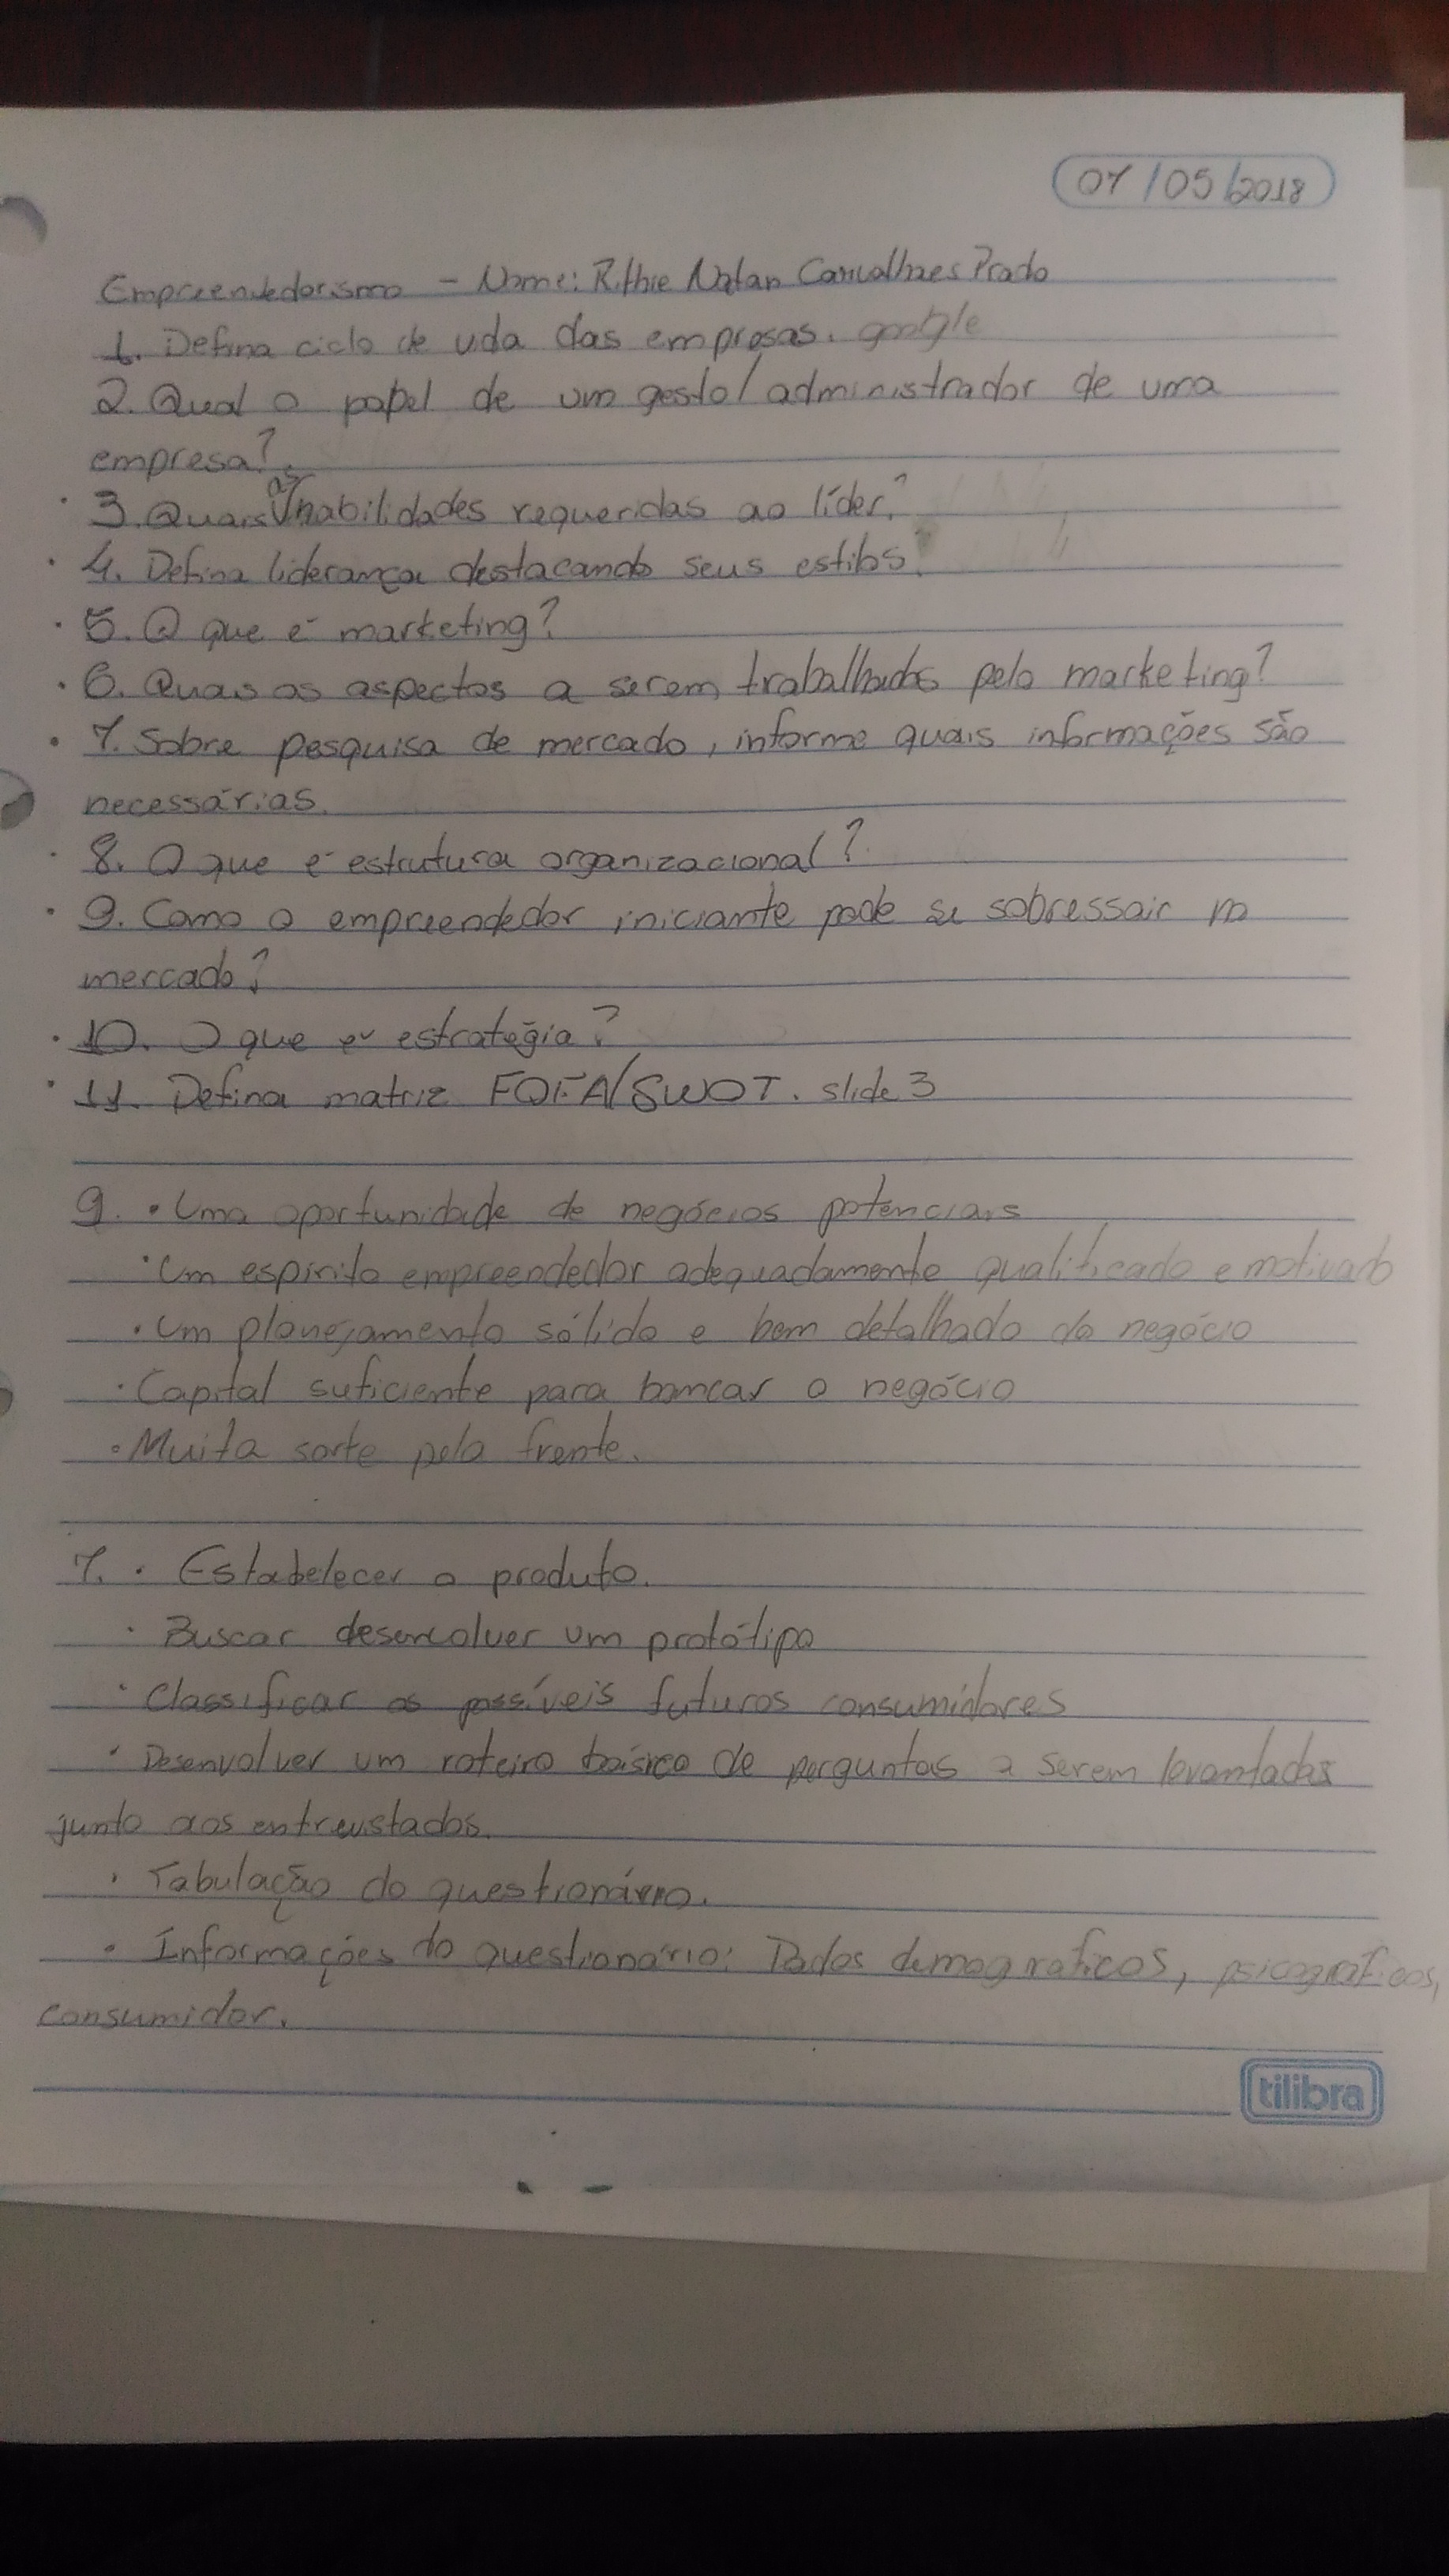 07/05/2018
Empreendedorismo - Nome: Rithie Natan Carvalhaes Prado
1. Defina ciclo de vida das empresas. google
2. Qual o papel de um gesto/administrador de uma
empresa?
3. Quais as habilidades requeridas ao líder?
4. Defina liderança destacando seus estilos.
5. O que é marketing?
6. Quais os aspectos a serem trabalhados pelo marketing?
7. Sobre pesquisa de mercado, informe quais informações são
necessárias.
8. O que é estrutura organizacional?
9. Como o empreendedor iniciante pode se sobressair no
mercado?
10. O que é estratégia?
11. Defina matriz FOFA/SWOT. slide 3
9. • Uma oportunidade de negócios potenciais
• Um espírito empreendedor adequadamente qualificado e motivado
• Um planejamento sólido e bem detalhado do negócio
• Capital suficiente para bancar o negócio
• Muita sorte pela frente.
7. • Estabelecer o produto.
• Buscar desenvolver um protótipo
• Classificar os possíveis futuros consumidores
• Desenvolver um roteiro básico de perguntas a serem levantadas
junto aos entrevistados.
• Tabulação do questionário.
• Informações do questionário: Dados demograficos, psicograficos,
consumidor.
tilibra